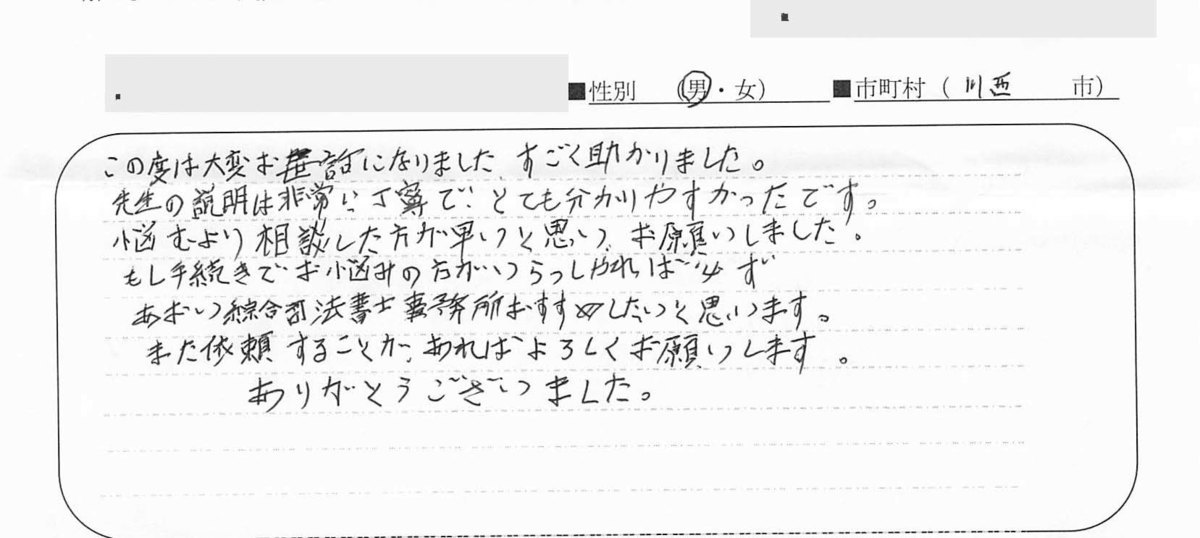 ■性別 (男・女) ■市町村 ( 川西 市)
この度は大変お世話になりました、すごく助かりました。
先生の説明は非常に丁寧で、とても分かりやすかったです。
悩むより相談した方が早いと思い、お願いしました。
もし手続きでお悩みの方がいらっしゃれば必ず
あおい綜合司法書士事務所おすすめしたいと思います。
また依頼することが、あればよろしくお願いします。
ありがとうございました。